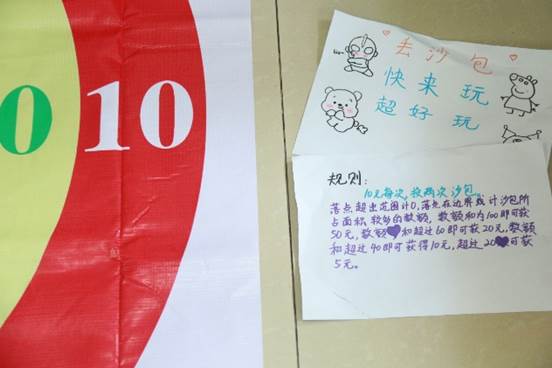 0 10
丢沙包
快来玩
超好玩
规则:
10元每次,投两次沙包。
落点超出范围计0,落点在边界线计沙包所
占面积较多的数额,数额和为100即可获
50元,数额和超过60即可获20元,数额
和超过40即可获得10元,超过20可获
5元。